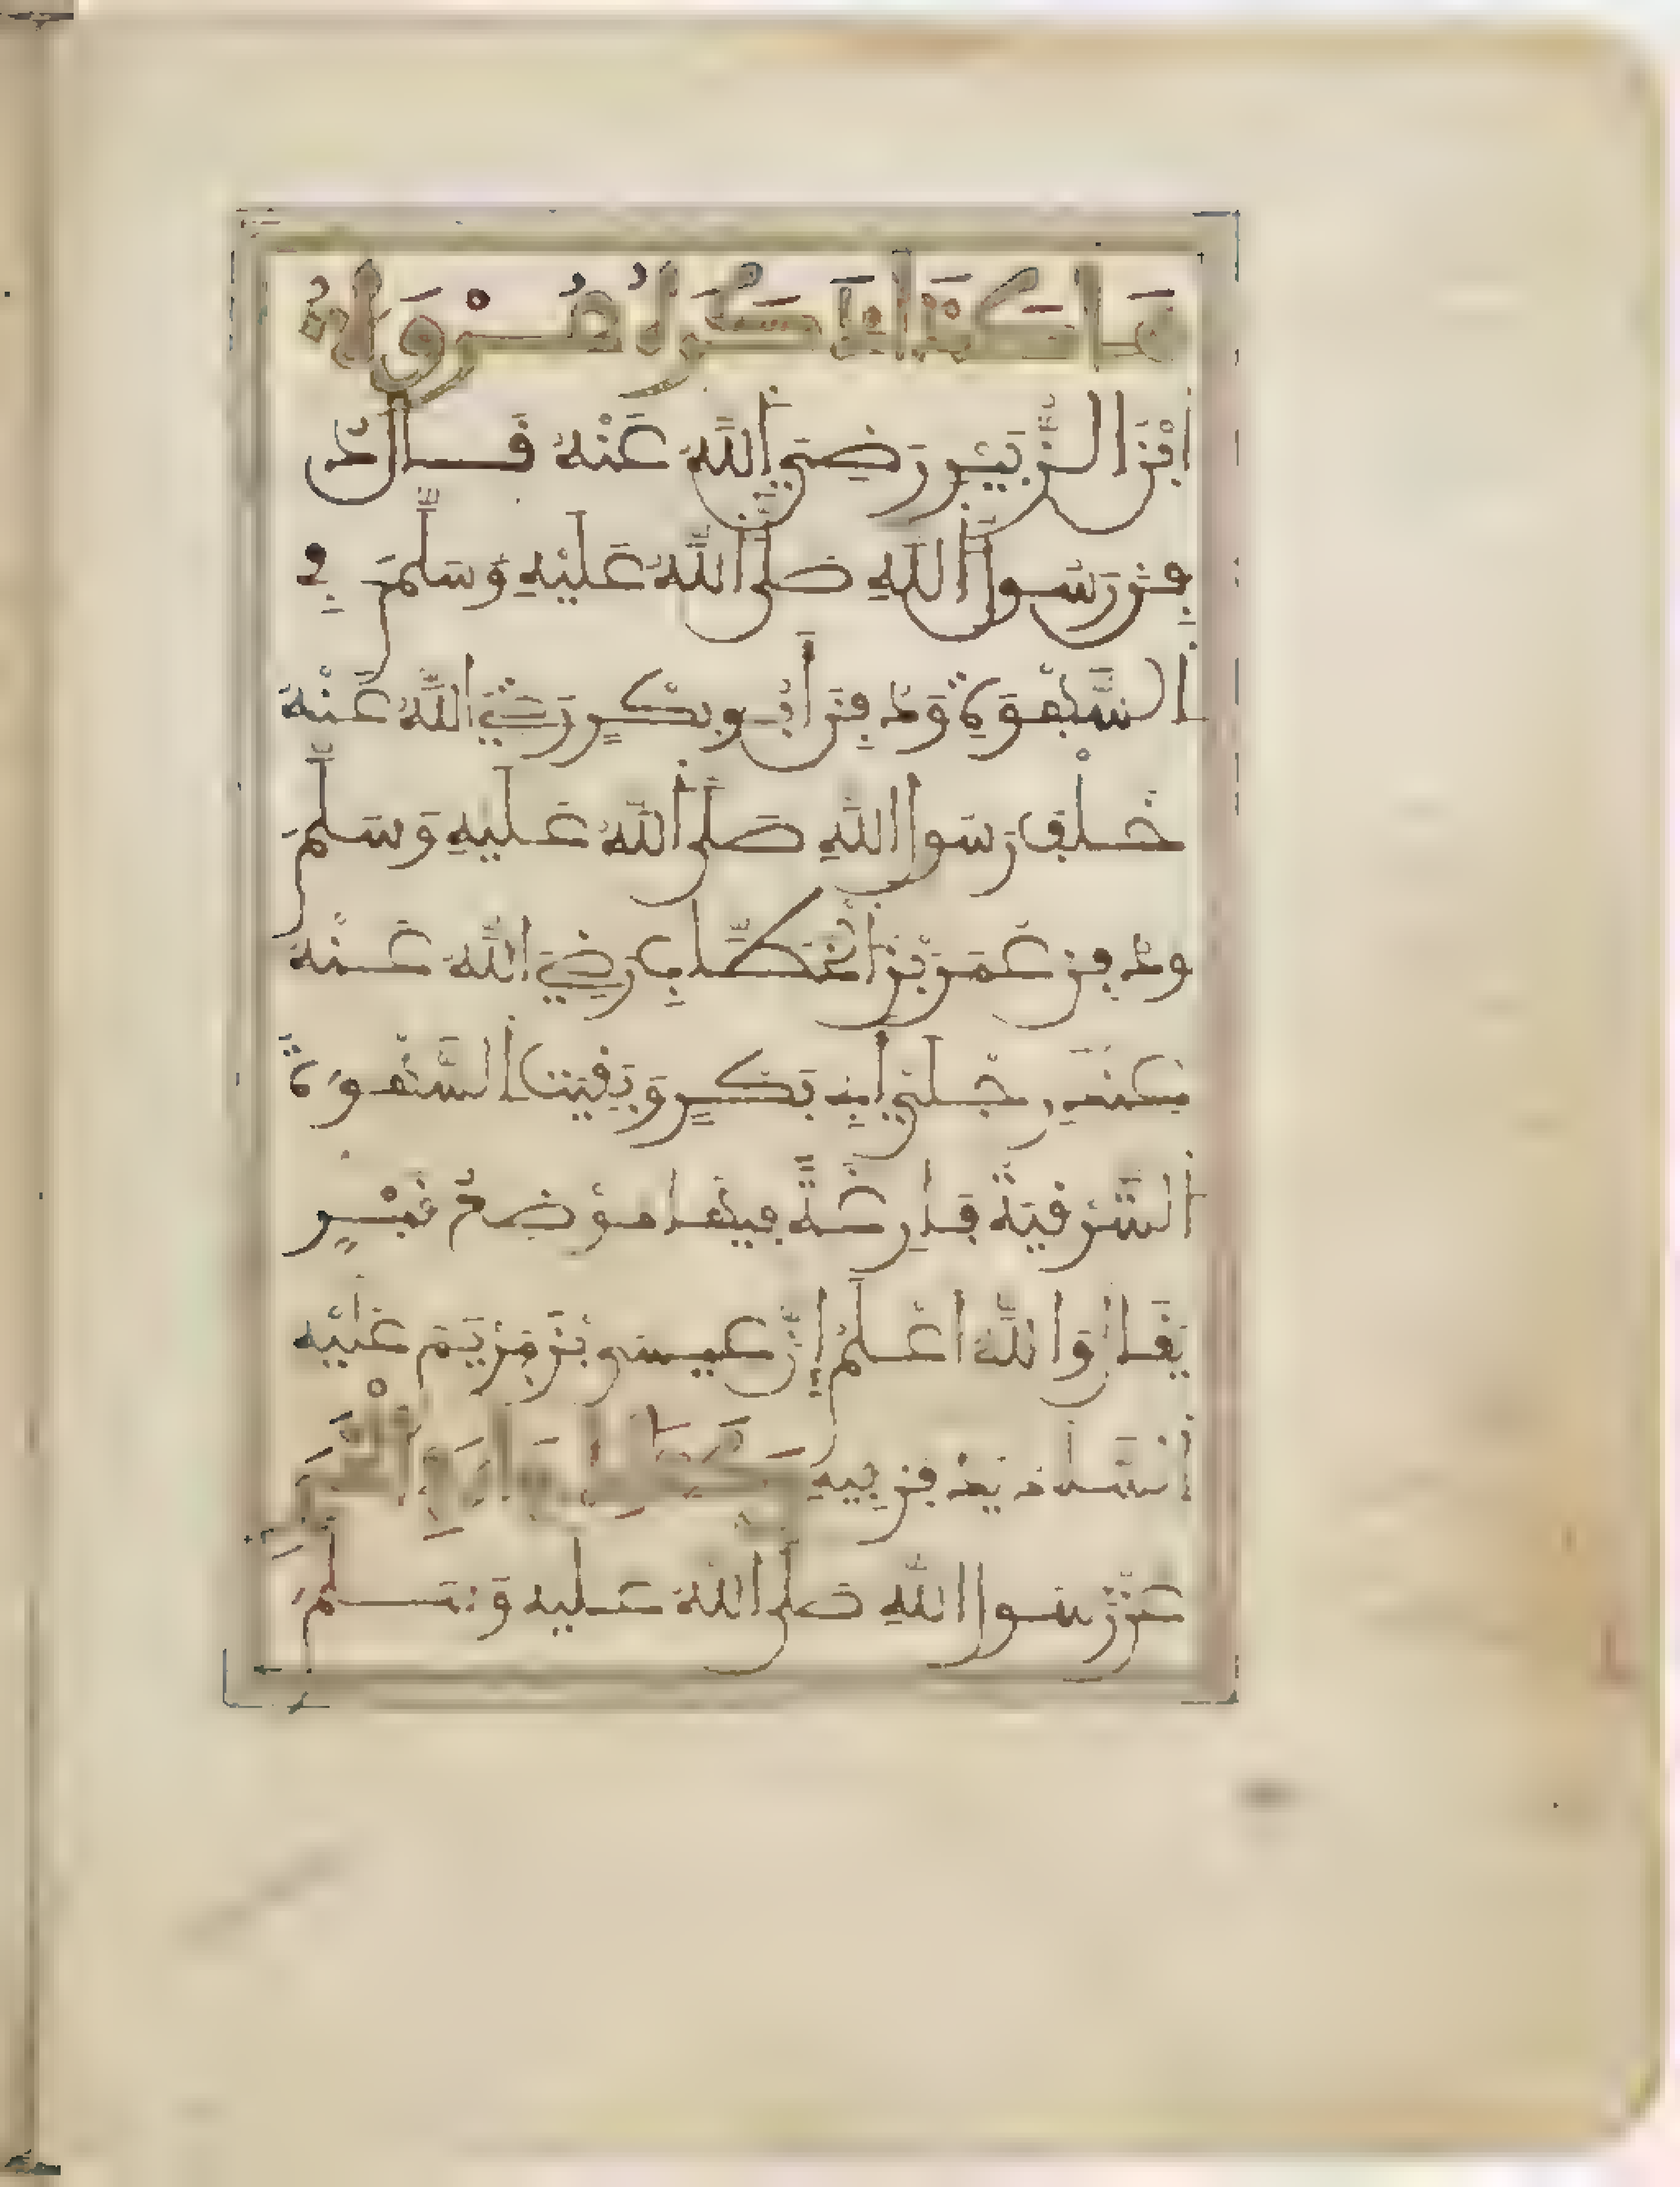 هَاكَذَا ذَكَرَهُ عُرْوَةُ
ابْنُ الزُّبَيْرِ رَضِيَ اللَّهُ عَنْهُ قَالَ دُ
فِنَ رَسُولُ اللَّهِ صَلَّى اللَّهُ عَلَيْهِ وَسَلَّمَ فِي
السَّهْوَةِ وَدُفِنَ أَبُو بَكْرٍ رَضِيَ اللَّهُ عَنْهُ
خَلْفَ رَسُولِ اللَّهِ صَلَّى اللَّهُ عَلَيْهِ وَسَلَّمَ
وَدُفِنَ عُمَرُ بْنُ الْخَطَّابِ رَضِيَ اللَّهُ عَنْهُ
عِنْدَ رِجْلَيْ أَبِي بَكْرٍ وَبَقِيَتِ السَّهْوَةُ
الشَّرْقِيَّةُ فَارِغَةً فِيهَا مَوْضِعُ قَبْرٍ
يُقَالُ وَاللَّهُ أَعْلَمُ إِنَّ عِيسَى بْنَ مَرْيَمَ عَلَيْهِ
السَّلَامُ يُدْفَنُ فِيهِ وَكَذَلِكَ جَاءَ فِي الْخَبَرِ
عَنْ رَسُولِ اللَّهِ صَلَّى اللَّهُ عَلَيْهِ وَسَلَّمَ